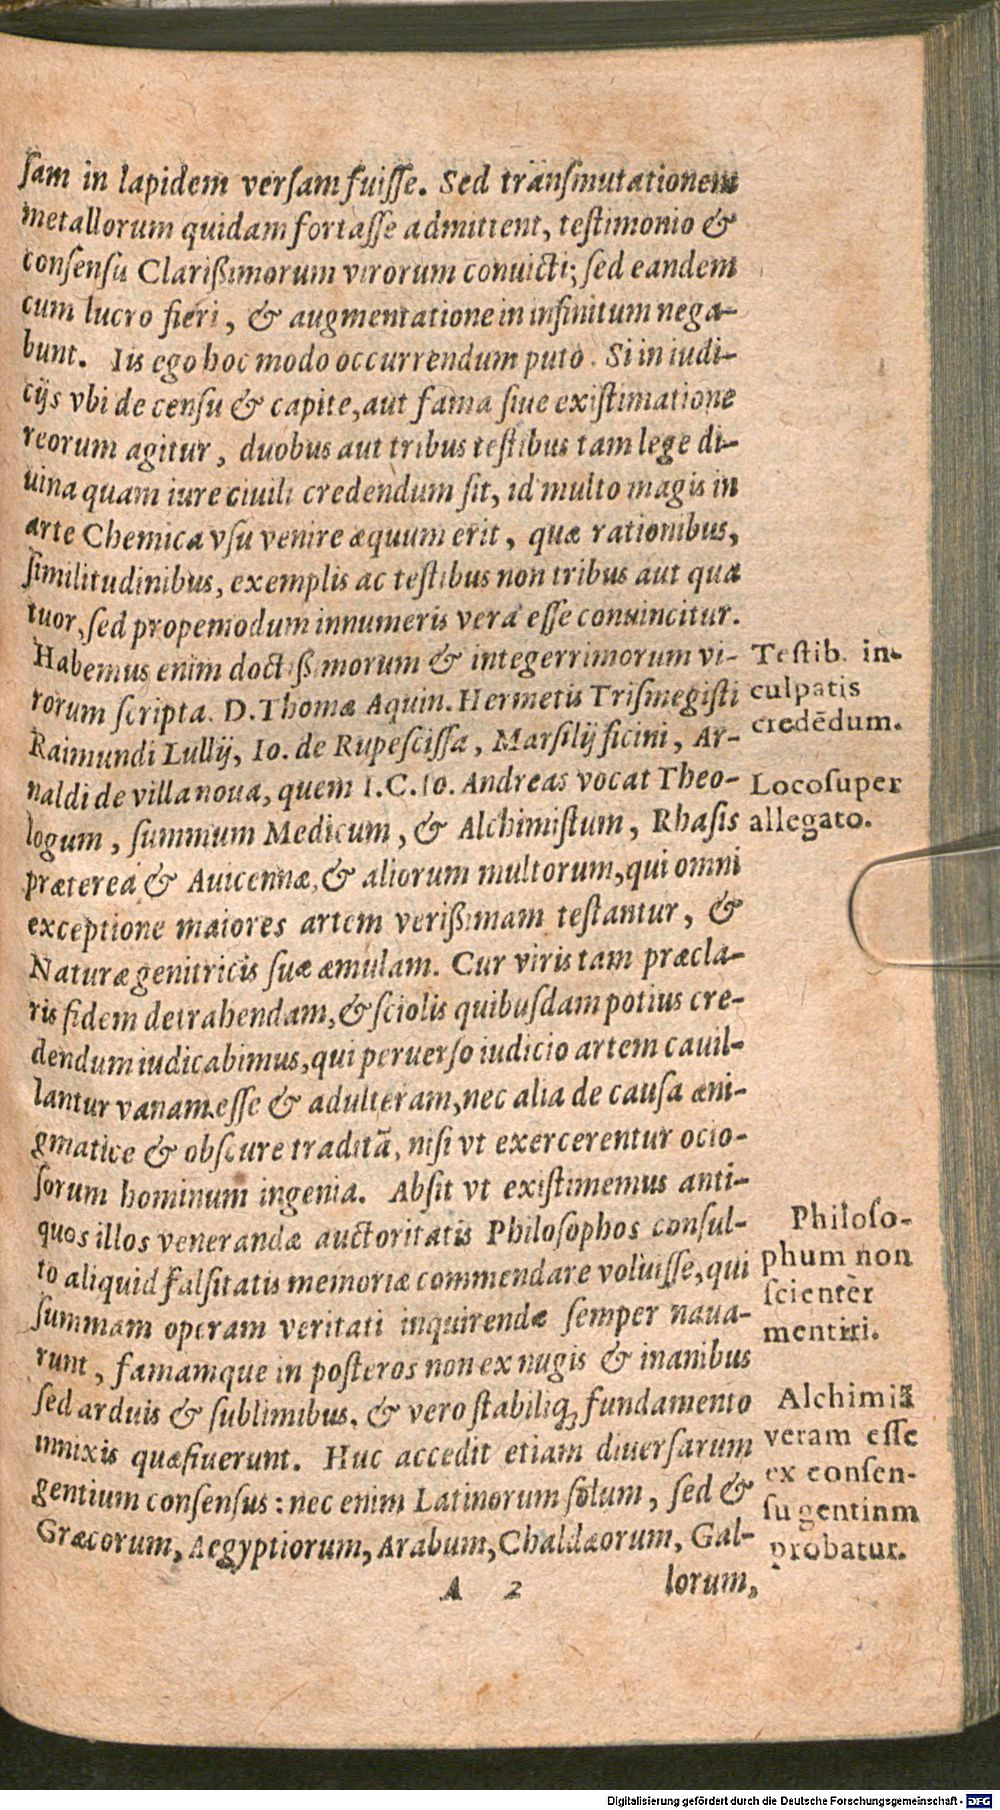 ſam in lapidem verſam fuiſſe. Sed tránſmutationem
metallorum quidam fortaſſe admittent, teſtimonio &
conſenſu Clarißimorum virorum convicti; ſed eandem
cum lucro fieri, & augmentatione in infinitum nega-
bunt. Iis ego hoc modo occurrendum puto. Si in iudi-
cijs vbi de cenſu & capite, aut fama ſiue exiſtimatione
reorum agitur, duobus aut tribus teſtibus tam lege di-
uina quam iure ciuili credendum ſit, id multo magis in
arte Chemica vſu venire æquum erit, quæ rationibus,
ſimilitudinibus, exemplis ac teſtibus non tribus aut qua
tuor, ſed propemodum innumeris vera eſſe conuincitur.
Habemus enim doctißimorum & integerrimorum vi-
rorum ſcripta. D. Thomæ Aquin. Hermetis Triſmegiſti
Raimundi Lullij, Io. de Rupeſciſſa, Marſilij ficini, Ar-
naldi de villa noua, quem I.C. Io. Andreas vocat Theo-
logum, ſummum Medicum, & Alchimiſtum, Rhaſis
præterea & Auicennæ, & aliorum multorum, qui omni
exceptione maiores artem verißimam teſtantur, &
Naturæ genitricis ſuæ æmulam. Cur viris tam præcla-
ris fidem detrahendam, & ſciolis quibuſdam potius cre-
dendum iudicabimus, qui peruerſo iudicio artem cauil-
lantur vanam eſſe & adulteram, nec alia de cauſa æni-
gmatice & obſcure traditã, niſi vt exercerentur ocio-
ſorum hominum ingenia. Abſit vt exiſtimemus anti-
quos illos venerandæ auctoritatis Philoſophos conſul-
to aliquid falſitatis memoriæ commendare voluiſſe, qui
ſummam operam veritati inquirendæ ſemper naua-
runt, famamque in poſteros non ex nugis & inanibus
ſed arduis & ſublimibus, & vero ſtabiliq́; fundamento
innixis quæſiuerunt. Huc accedit etiam diuerſarum
gentium conſenſus: nec enim Latinorum ſolum, ſed &
Græcorum, Aegyptiorum, Arabum, Chaldæorum, Gal-
A 2
lorum,
Teſtib. in-
culpatis
credēdum.
Loco ſuper
allegato.
Philoſo-
phum non
ſcienter
mentiri.
Alchimiã
veram eſſe
ex conſen-
ſu gentinm
probatur.
Digitalisierung gefördert durch die Deutsche Forschungsgemeinschaft - DFG